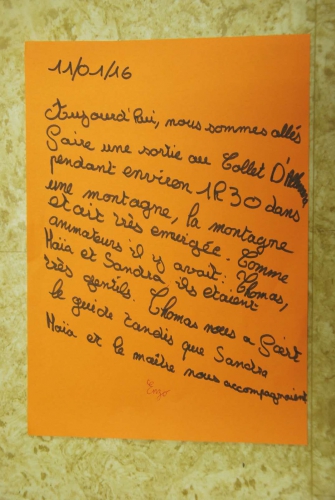 11/01/16
Aujourd'hui, nous sommes allés
faire une sortie au Collet D'Allevard
pendant environ 1R30 dans
une montagne, la montagne
était très enneigée. Comme
animateurs il y avait: Thomas,
Maia et Sandra, ils étaient
très gentils. Thomas nous a fait
le guide tandis que Sandra
Maia et le maître nous accompagnaient
Enzo